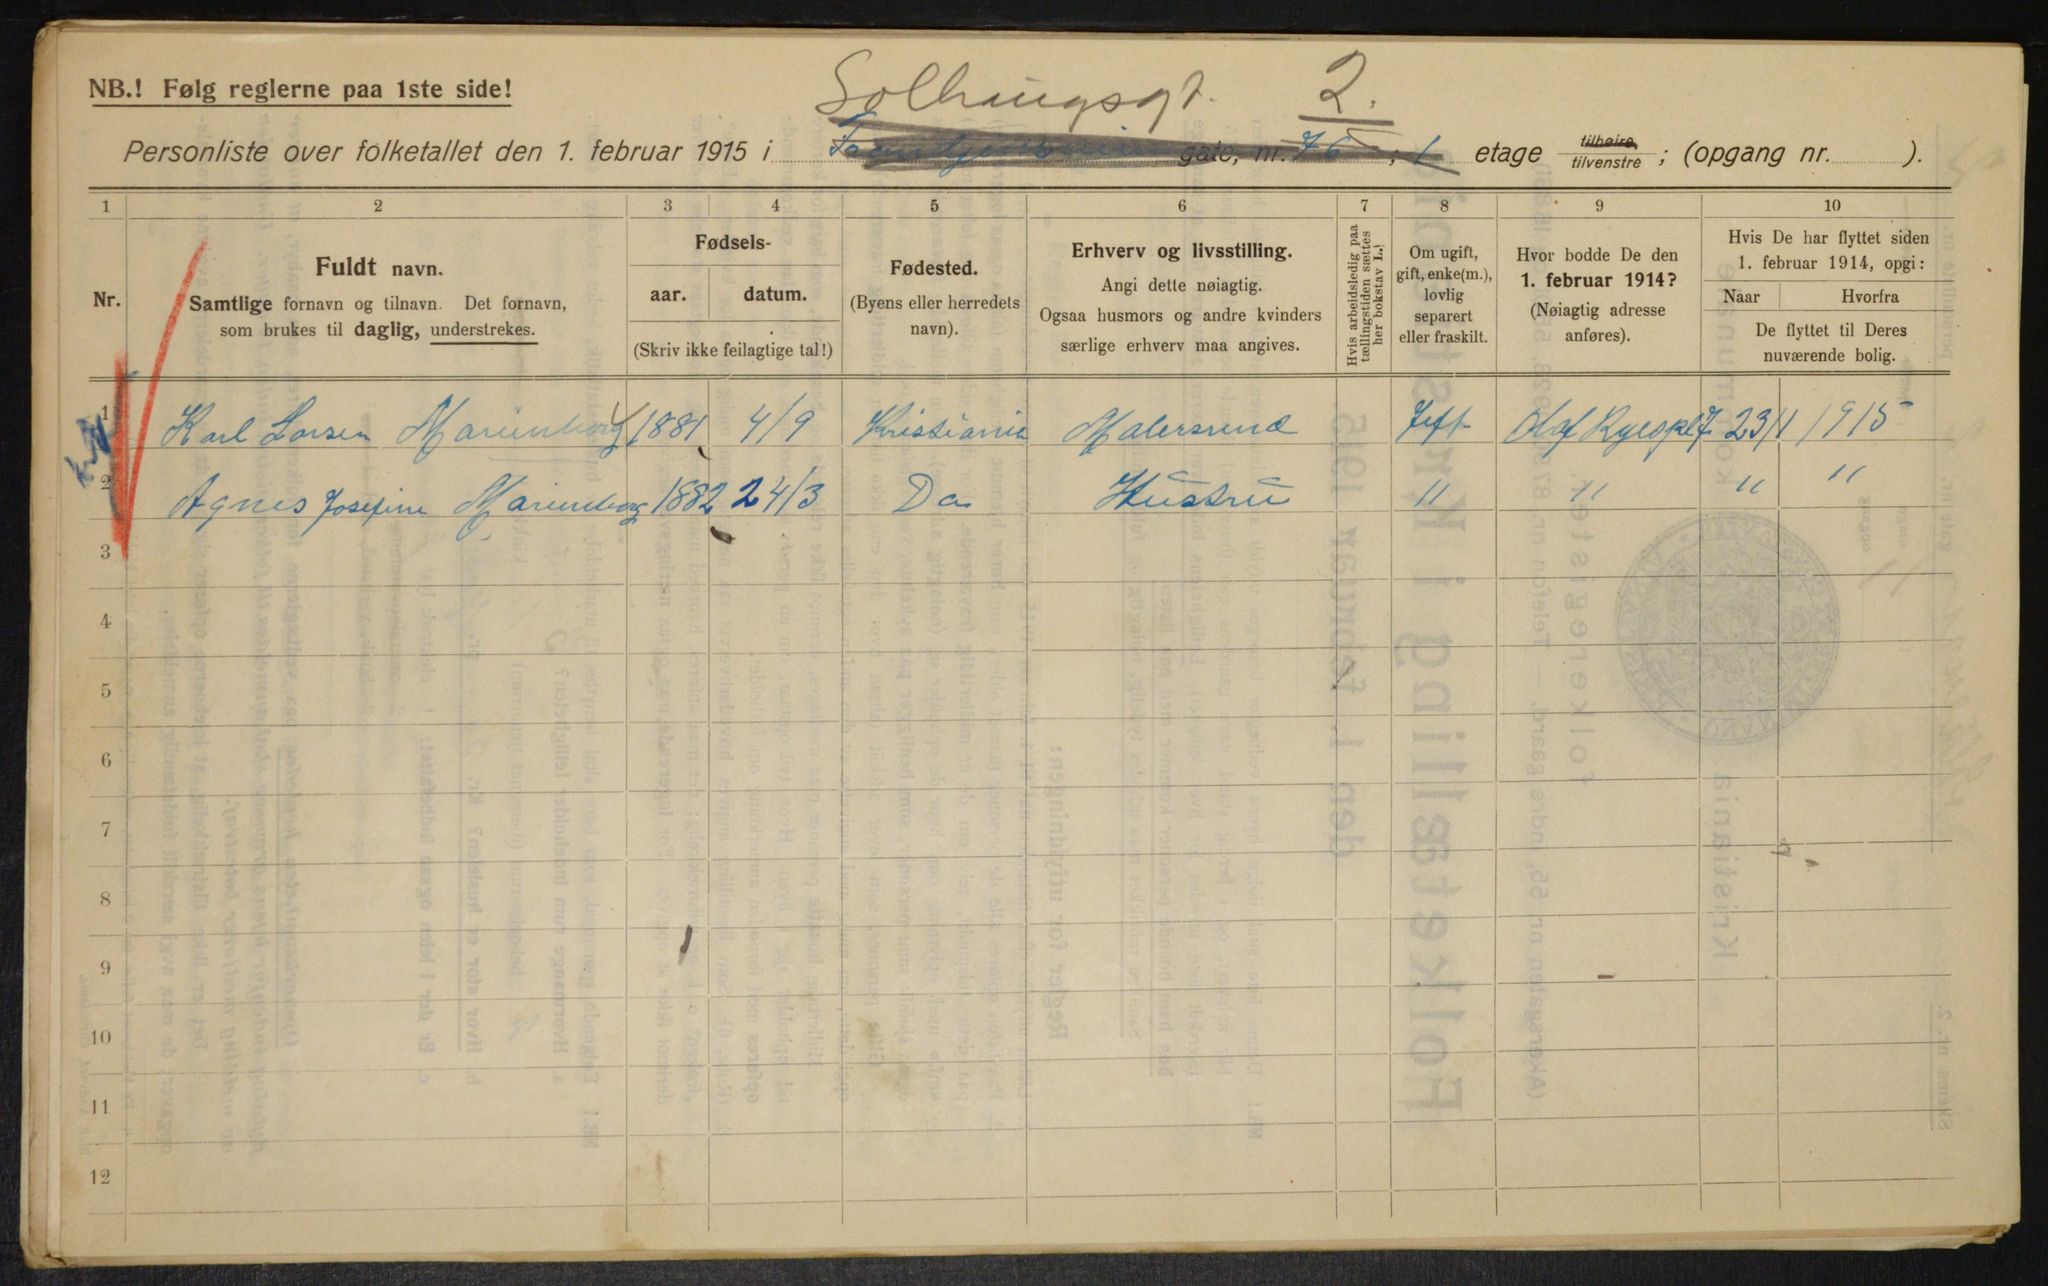 NB.! Følg reglerne paa 1ste side!
Solhaugsgt. 2.
Personliste over folketallet den 1. februar 1915 i gate, nr. 76, 1 etage tilhøire, tilvenstre; (opgang nr. ).
1 2 3 4 5 6 7 8 9 10
Nr.
Fuldt navn.
Samtlige fornavn og tilnavn. Det fornavn,
som brukes til daglig, understrekes.
Fødsels-
aar. datum.
(Skriv ikke feilagtige tal!)
Fødested.
(Byens eller herredets
navn).
Erhverv og livsstilling.
Angi dette nøiagtig.
Ogsaa husmors og andre kvinders
særlige erhverv maa angives.
Hvis arbeidsledig paa
tællingstiden sættes
her bokstav L.!
Om ugift,
gift, enke(m.),
lovlig
separert
eller fraskilt.
Hvor bodde De den
1. februar 1914?
(Nøiagtig adresse
anføres).
Hvis De har flyttet siden
1. februar 1914, opgi:
Naar Hvorfra
De flyttet til Deres
nuværende bolig.
1 Karl Larsen Marienborg 1881 4/9 Kristiania Malersvend Gift Olaf Ryespl 7 23/1 1915
2 Agnes Josefine Marienborg 1882 24/3 Do Hustru " " " "
3
4
5
6
7
8
9
10
11
12